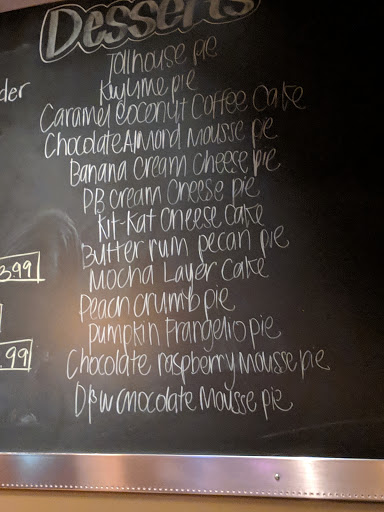 Desserts
Tollhouse pie
Key lime pie
der
Caramel Coconut Coffee Cake
Chocolate Almond Mousse pie
Banana Cream Cheese pie
PB Cream Cheese Pie
Kit-Kat Cheese Cake
Butter rum pecan pie
3.99
Mocha Layer Cake
Peach crumb pie
Pumpkin Frangelio pie
.99
Chocolate raspberry Mousse pie
D/BW Chocolate Mousse pie